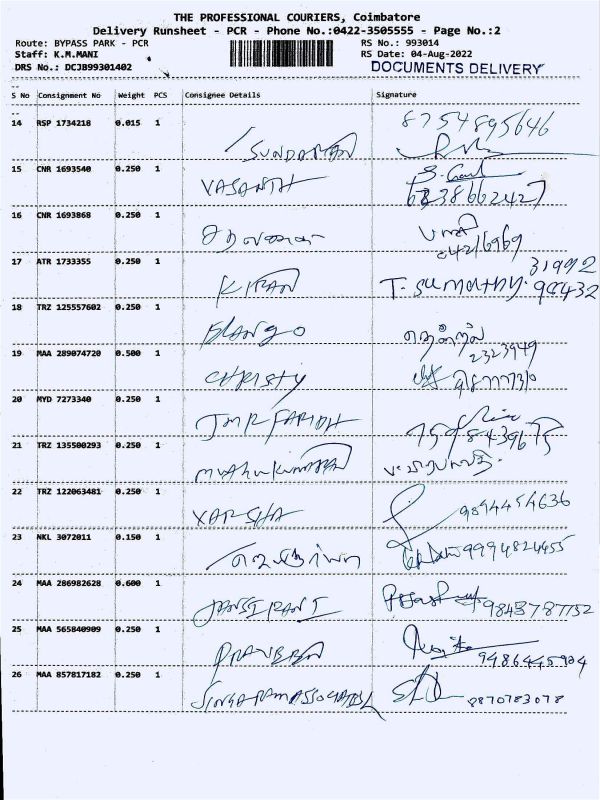 THE PROFESSIONAL COURIERS, Coimbatore
Delivery Runsheet - PCR - Phone No.:0422-3505555 - Page No.:2
Route: BYPASS PARK - PCR RS No.: 993014
Staff: K.M.MANI RS Date: 04-Aug-2022
DRS No.: DCJB99301402 DOCUMENTS DELIVERY
S No Consignment No Weight PCS Consignee Details Signature
14 RSP 1734218 0.015 1 8754895646
SUNDARAM
15 CNR 1693540 0.250 1
VASANTH
16 CNR 1693868 0.250 1
04216969
17 ATR 1733355 0.250 1 31992
KIRAN T. Sumathy. 98432
18 TRZ 125557602 0.250 1
Elango
2323949
19 MAA 289074720 0.500 1
CHRISTY
20 MYD 7273340 0.250 1
21 TRZ 135500293 0.250 1
Muthukumaran
22 TRZ 122063481 0.250 1
VARSHA 9894454636
23 NKL 3072011 0.150 1
9994824455
24 MAA 286982628 0.600 1
JANSI RANI 9843787152
25 MAA 565840909 0.250 1
PRAVEEN 9486445904
26 MAA 857817182 0.250 1
8870783078